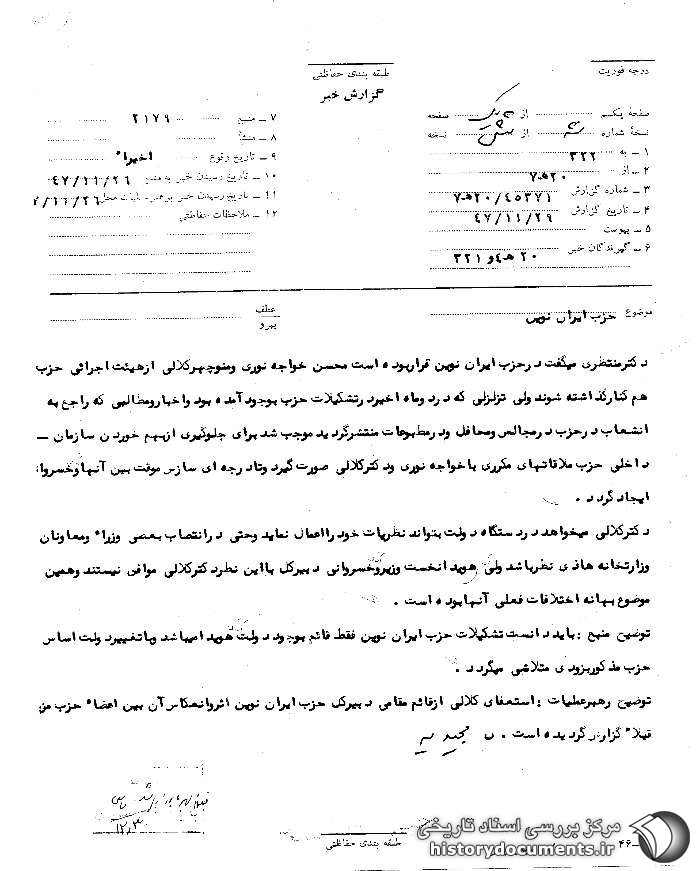 درجه فوریت
طبقه بندی حفاظتی
گزارش خبر
صفحهٔ یکم از یک صفحه
نسخهٔ شماره از شش نسخه
۱ ـ به ۳۲۲
۲ ـ از ۲۰ه۷
۳ ـ شماره گزارش ۲۰/۴۵۳۷۱ه۷
۴ ـ تاریخ گزارش ۴۷/۱۱/۲۹
۵ ـ پیوست
۶ ـ گیرندگان خبر ۲۰ ه‍ ۴ و ۳۲۱
۷ ـ منبع ۲۱۷۹
۸ ـ منشأ
۹ ـ تاریخ وقوع اخیراً
۱۰ ـ تاریخ رسیدن خبر به منبع ۴۷/۱۱/۲۶
۱۱ ـ تاریخ رسیدن خبر برهبر عملیات محل ۷/۱۱/۲۶
۱۲ ـ ملاحظات حفاظتی
موضوع حزب ایران نوین
عطف
پیرو
دکترمنتظری میگفت درحزب ایران نوین قراربوده است محسن خواجه نوری ومنوچهرکلالی ازهیئت اجرائی حزب
هم کنارگذاشته شوند ولی تزلزلی که دردوماه اخیردرتشکیلات حزب بوجودآمده بود واخبارومطالبی که راجع به
انشعاب درحزب درمجالس ومحافل ودرمطبوعات منتشرگردید موجب شد برای جلوگیری ازبهم خوردن سازمان ـ
داخلی حزب ملاقاتهای مکرری باخواجه نوری ودکترکلالی صورت گیرد وتادرجه ای سازس موقت بین آنهاوخسروانی
ایجادگردد .
دکترکلالی میخواهد دردستگاه دولت بتواند نظریات خودرااعمال نماید وحتی درانتصاب بعضی وزراء ومعاونان
وزارتخانه هاذی نظرباشد ولی هویدانخست وزیروخسروانی دبیرکل بااین نظردکترکلالی موافق نیستند وهمین
موضوع بهانه اختلافات فعلی آنهابوده است .
توضیح منبع : بایددانست تشکیلات حزب ایران نوین فقط قائم بوجوددولت هویدامیباشد وباتغییردولت اساس
حزب مذکوربزودی متلاشی میگردد .
توضیح رهبرعملیات : استعفای کلالی ازقائم مقامی دبیرکل حزب ایران نوین اثروانعکاس آن بین اعضاء حزب مز
قبلاً گزارش گردیده است .
طبقه بندی حفاظتی
۴۶
مرکز بررسی اسناد تاریخی
historydocuments.ir